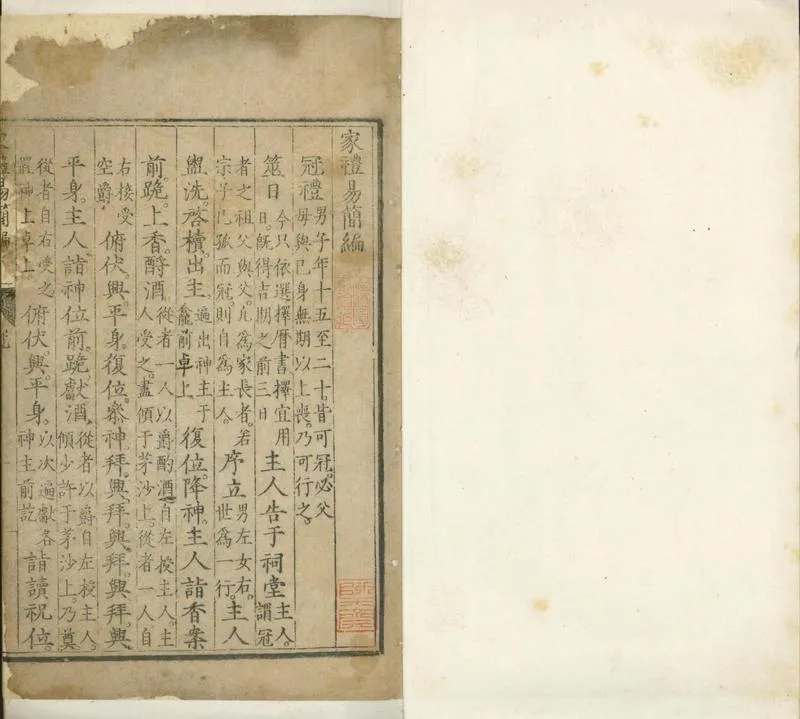 家禮易簡編
冠禮 男子年十五至二十。皆可冠。必父
母與已身無期以上喪。乃可行之。
筮日 今只依選擇曆書擇宜用
日。既得吉期之前三日 主人告于祠堂 主人。
謂冠
者之祖父與父。凡為家長者。若
宗子已孤而冠。則自為主人。 序立 男左女右。
世為一行。 主人
盥洗。啓櫝。出主 遍出神主于
龕前卓上 復位。降神。主人詣香案
前。跪。上香。酹酒 從者一人以爵酌酒。自左授主人。主
人受之。盡傾于茅沙上。從者一人自
右接受
空爵 俯伏。興。平身。復位。叅神。拜。興。拜。興。拜。興。拜。興
平身。主人詣神位前。跪。獻酒。 從者以爵自左授主人。
傾少許于茅沙上。乃奠
從者自右受之
置神上卓上。 俯伏。興。平身。 以次遍獻各
神主前訖 詣讀祝位。
禮易簡編